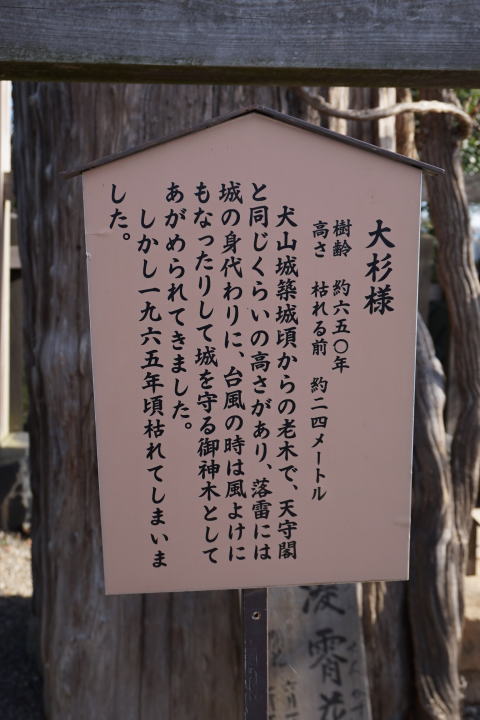 大杉様
樹齢 約六五〇年
高さ 枯れる前 約二四メートル
犬山城築城頃からの老木で、天守閣
と同じくらいの高さがあり、落雷には
城の身代わりに、台風の時は風よけに
もなったりして城を守る御神木として
あがめられてきました。
しかし一九六五年頃枯れてしまいま
した。
凌霄花